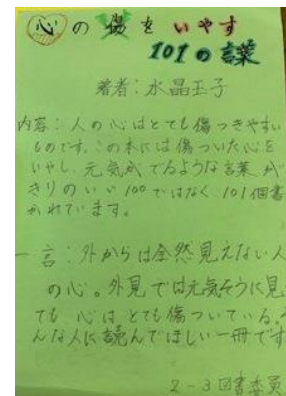 心の傷をいやす
101の言葉
著者：水晶玉子
内容：人の心はとても傷つきやすい
ものです。この本には傷ついた心を
いやし、元気がでるような言葉が
きりのいい100ではなく101個書
かれています。
一言：外からは全然見えない人
の心。外見では元気そうに見
ても心はとても傷ついている。そ
んな人に読んでほしい一冊です
2-3図書委員